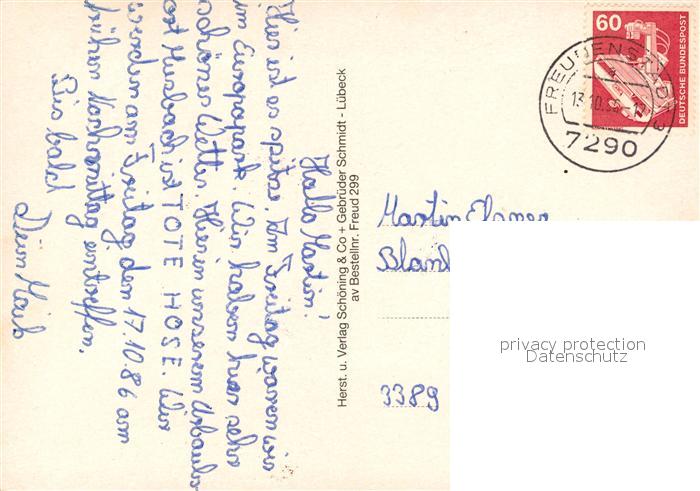 Hallo Martin!
Hier ist es spitze. Am Freitag waren wir
im Europapark. Wir haben hier sehr
schönes Wetter. Hier in unserem Urlaubs-
ort Husbach ist TOTE HOSE. Wir
werden am Freitag den 17.10.86 am
frühen Vormittag eintreffen.
Bis bald
Dein Maik
Herst. u. Verlag Schöning & Co + Gebrüder Schmidt - Lübeck
av Bestellnr. Freud 299
60
DEUTSCHE BUNDESPOST
FREUDENSTADT 3
13.10.
7290
Martin
3389
privacy protection
Datenschutz